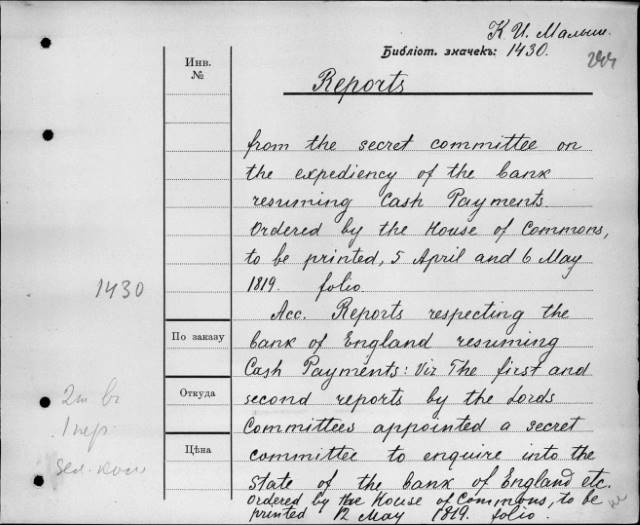 К. И. Малыш.
Библіот. значекъ: 1430.
Инв.
№
Reports
from the secret committee on
the expediency of the bank
resuming Cash Payments.
Ordered by the House of Commons,
to be printed, 5 April and 6 May
1819. folio.
1430
Acc. Reports respecting the
По заказу
bank of England resuming
Cash Payments: Viz The first and
Откуда
second reports by the Lords
2т вг
Committees appointed a secret
1 пер.
Цѣна
committee to enquire into the
State of the bank of England etc.
ordered by the House of Commons, to be
printed 12 May 1819. folio.